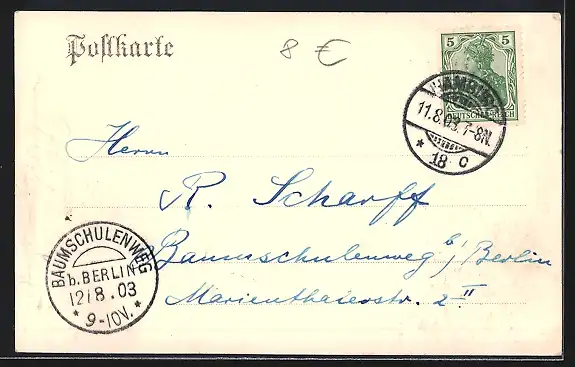 Postkarte
8 €
5 5
DEUTSCHES REICH
HAMBURG
11.8.03. 7-8N.
* 18 c
Herrn
R. Scharff
Baumschulenweg b/ Berlin
Marienthalerstr. 2 II
BAUMSCHULENWEG
b. BERLIN
12/8.03
* 9-10V. *